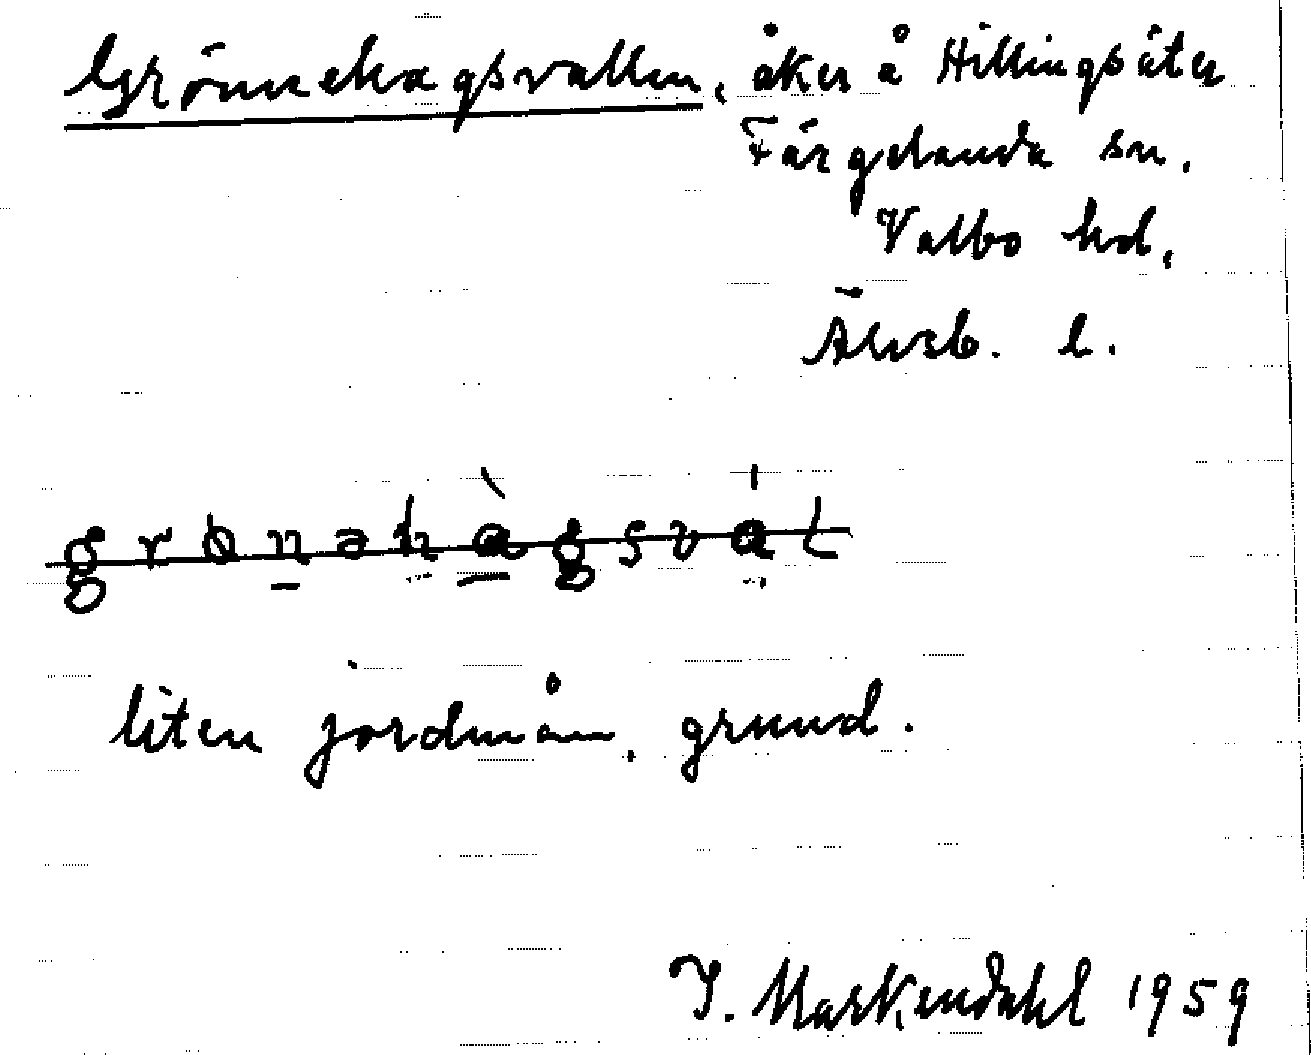 Grönnehagsvallen, åker å Hillingsäter
Färgelanda sn.
Valbo hd,
Älvsb. l.
grønəhàgsvál
liten jordmån, grund.
I. Markendahl 1959